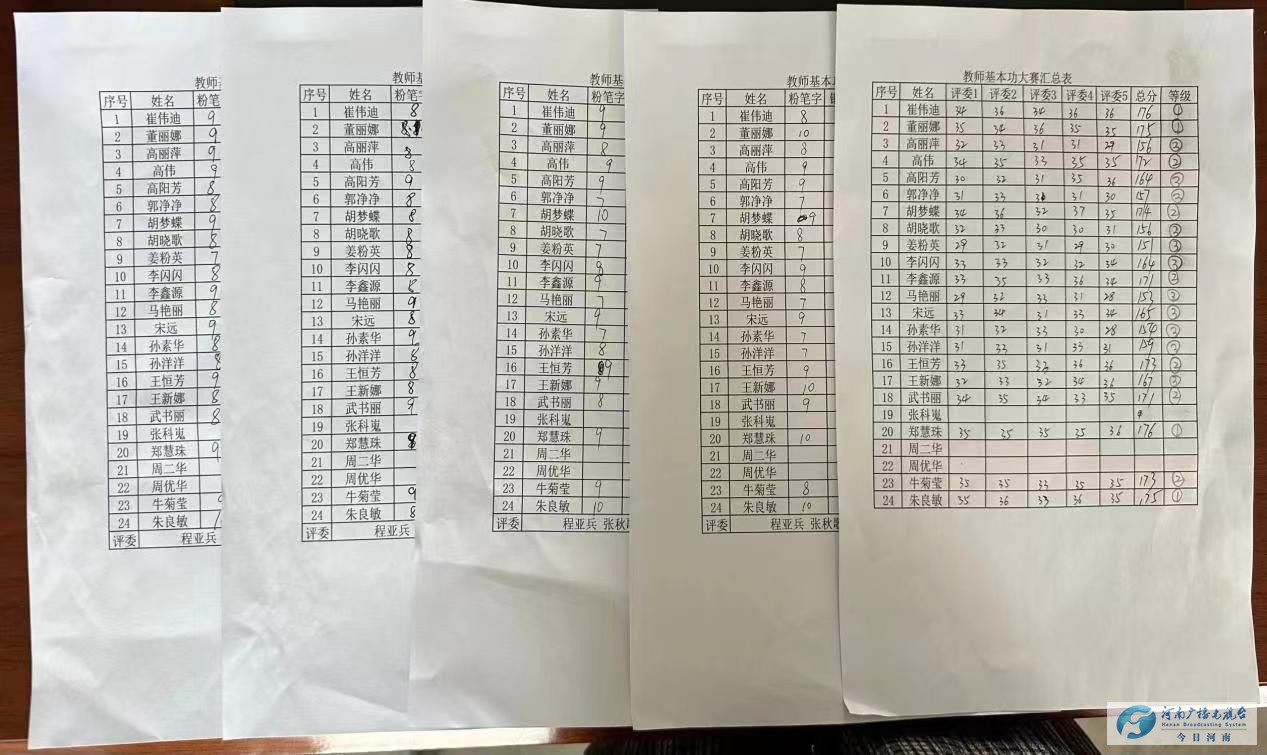 教师基
序号 姓名 粉笔
1 崔伟迪 9
2 董丽娜 9
3 高丽萍 9
4 高伟 9
5 高阳芳 8
6 郭净净 8
7 胡梦蝶 9
8 胡晓歌 8
9 姜粉英 7
10 李闪闪 8
11 李鑫源 9
12 马艳丽 8
13 宋远 9
14 孙素华 8
15 孙洋洋 8
16 王恒芳 9
17 王新娜 8
18 武书丽 8
19 张科嵬
20 郑慧珠 9
21 周二华
22 周优华
23 牛菊莹
24 朱良敏
评委 程亚兵
教师基本
序号 姓名 粉笔字
1 崔伟迪 8
2 董丽娜
3 高丽萍 8
4 高伟 8
5 高阳芳 9
6 郭净净 8
7 胡梦蝶 8
8 胡晓歌 8
9 姜粉英 8
10 李闪闪 8
11 李鑫源 8
12 马艳丽 9
13 宋远 8
14 孙素华 9
15 孙洋洋 8
16 王恒芳 8
17 王新娜 8
18 武书丽 9
19 张科嵬
20 郑慧珠
21 周二华
22 周优华
23 牛菊莹 9
24 朱良敏 8
评委 程亚兵
教师基
序号 姓名 粉笔字
1 崔伟迪 9
2 董丽娜 9
3 高丽萍 8
4 高伟 9
5 高阳芳 9
6 郭净净 7
7 胡梦蝶 10
8 胡晓歌 7
9 姜粉英 7
10 李闪闪
11 李鑫源 9
12 马艳丽 7
13 宋远 9
14 孙素华 7
15 孙洋洋 8
16 王恒芳 9
17 王新娜 9
18 武书丽 8
19 张科嵬
20 郑慧珠 9
21 周二华
22 周优华
23 牛菊莹 9
24 朱良敏 10
评委 程亚兵 张秋
教师基本
序号 姓名 粉笔字
1 崔伟迪 8
2 董丽娜 10
3 高丽萍 8
4 高伟 9
5 高阳芳 9
6 郭净净 7
7 胡梦蝶 9
8 胡晓歌 8
9 姜粉英 7
10 李闪闪 9
11 李鑫源 8
12 马艳丽 7
13 宋远 9
14 孙素华 7
15 孙洋洋 7
16 王恒芳 9
17 王新娜 10
18 武书丽 9
19 张科嵬
20 郑慧珠 10
21 周二华
22 周优华
23 牛菊莹 8
24 朱良敏 10
评委 程亚兵 张秋歌
教师基本功大赛汇总表
序号 姓名 评委1 评委2 评委3 评委4 评委5 总分 等级
1 崔伟迪 34 36 34 36 36 176 ①
2 董丽娜 35 34 36 35 35 175 ①
3 高丽萍 32 33 31 31 29 156 ③
4 高伟 34 35 33 35 35 172 ②
5 高阳芳 30 32 31 35 36 164 ③
6 郭净净 31 33 31 30 157 ③
7 胡梦蝶 34 36 32 37 35 174 ②
8 胡晓歌 32 33 30 30 31 156 ③
9 姜粉英 29 32 31 29 30 151 ③
10 李闪闪 33 33 32 32 34 164 ③
11 李鑫源 33 35 33 36 34 171 ②
12 马艳丽 29 32 33 31 28 153 ③
13 宋远 33 34 31 33 34 165 ③
14 孙素华 31 32 33 30 28 154 ③
15 孙洋洋 31 33 31 33 31 159 ③
16 王恒芳 33 35 33 36 36 173 ②
17 王新娜 32 33 32 34 36 167 ③
18 武书丽 34 35 34 33 35 171 ②
19 张科嵬
20 郑慧珠 35 35 35 35 36 176 ①
21 周二华
22 周优华
23 牛菊莹 35 35 33 35 35 173 ②
24 朱良敏 35 36 33 36 35 175 ①
河南广播电视台
Henan Broadcasting System
今日河南